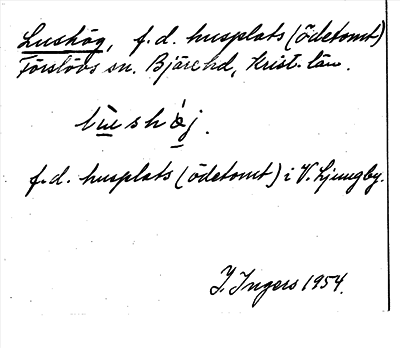 Lushög, f.d. husplats (ödetomt)
Förslövs sn. Bjäre hd, Krist. län.
lùshö́j.
f.d. husplats (ödetomt) i V. Ljungby.
I. Ingers 1954.